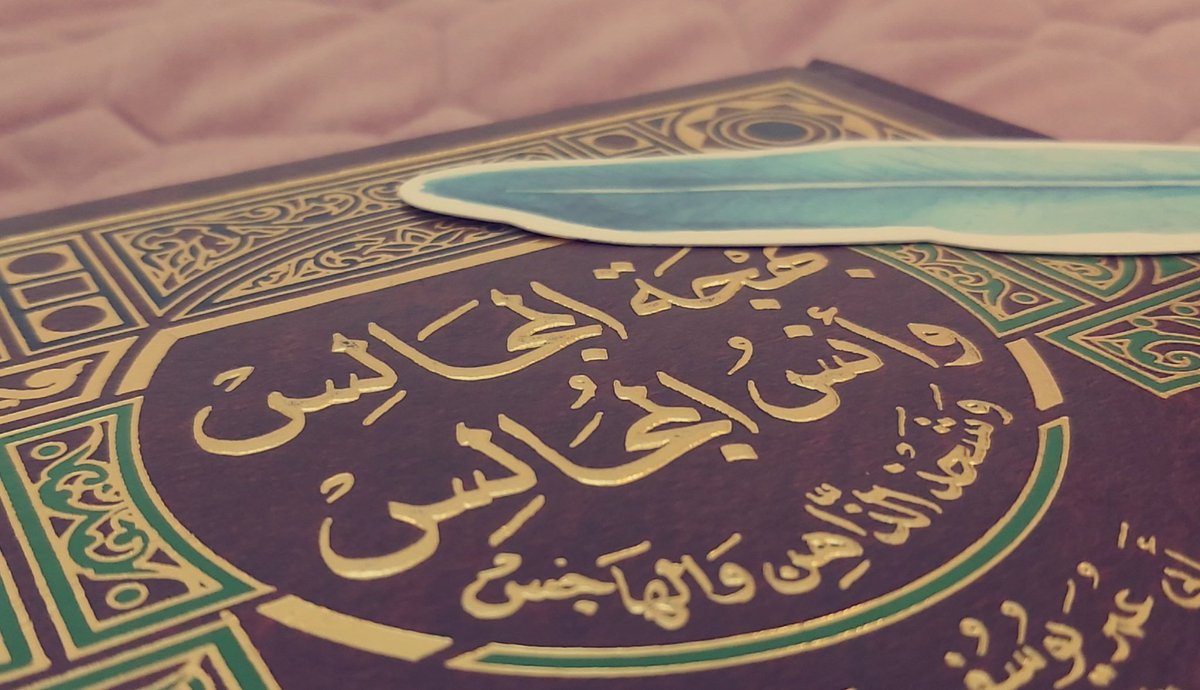 بهجة المجالس
وأنس المُجالِس
وشحذ الذّاهن والهاجس